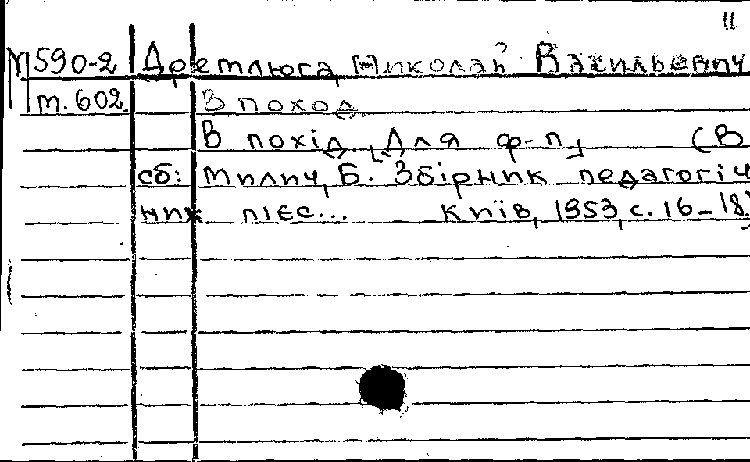 11
М590-2 Дремлюга, Николай Васильевич
т. 602. В поход
В похід [Для ф-п] (В
сб: Милич, Б. Збірник педагогіч
них п'єс... Київ, 1953, с. 16-18)